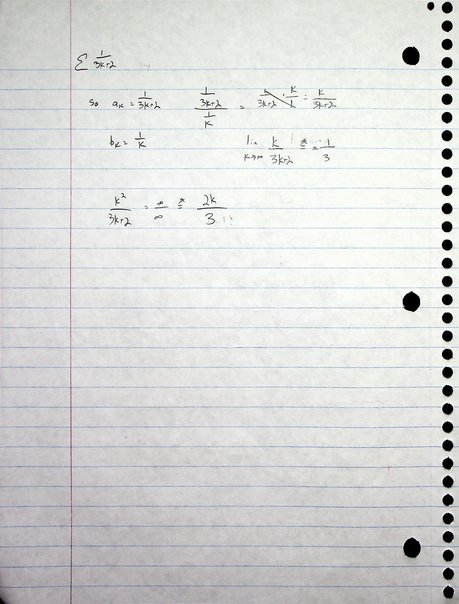 Σ 1/(3k+2)
so a_k = 1/(3k+2)   (1/(3k+2))/(1/k) = 1/(3k+2) · k/1 = k/(3k+2)
b_k = 1/k   lim k→∞ k/(3k+2) = 1/3
k²/(3k+2) = ∞/∞ = 2k/3